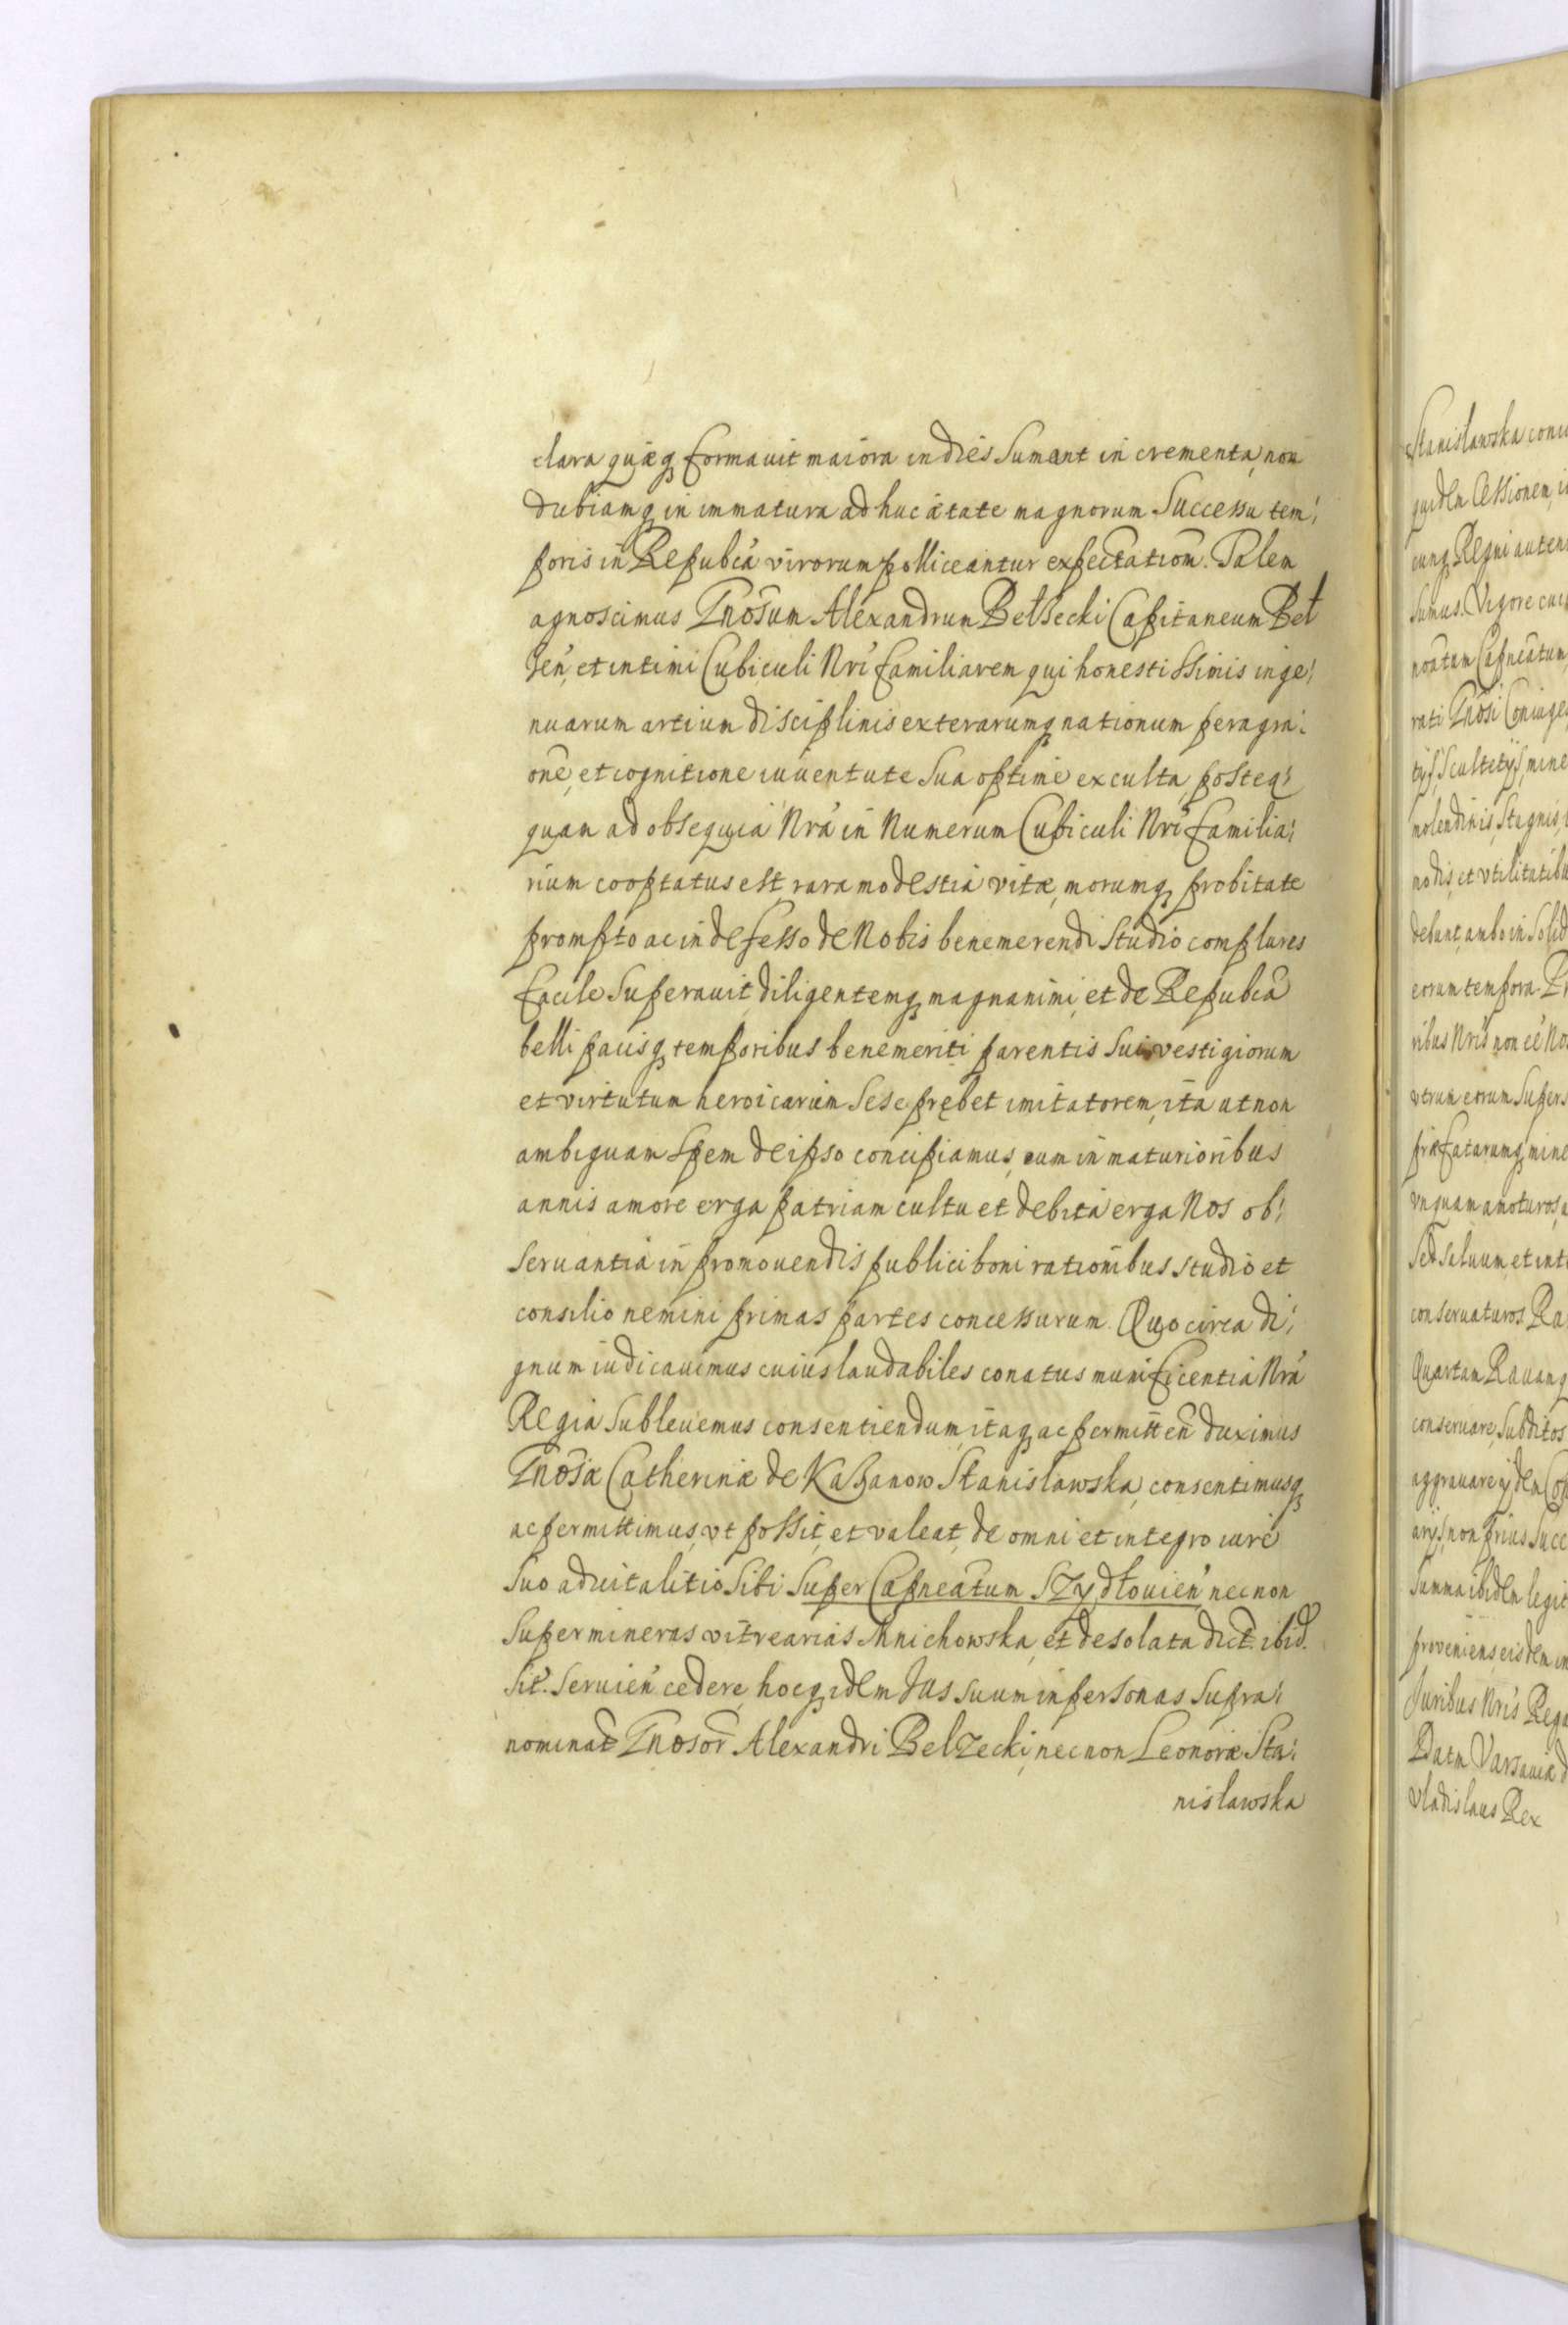 clara quæq formauit maiora in dies sumant in crementa, non
dubiamq in immatura adhuc ætate magnorum successu tem:
poris in Repubca virorum polliceantur expectationm. Talem
agnoscimus Gnosum Alexandrum Bełzecki Capitaneum Beł
zen, et intimi Cubiculi Nri familiarem qui honestissimis inge:
nuarum artium disciplinis exterarumq nationum peragra:
one, et cognitione iuuentute sua optime exculta, posteq:
quam ad obsequia Nra in Numerum Cubiculi Nri familia:
rium cooptatus est, rara modestia vitæ, morumq probitate
prompto ac indefesso de Nobis benemerendi studio complures
facile superauit, diligentemq magnanimi, et de Repubca
belli pacisq temporibus benemeriti parentis sui vestigiorum
et virtutum heroicarum sese prębet imitatorem, ita ut non
ambiguam spem de ipso concipiamus, eum in maturioribus
annis amore erga patriam cultu et debita erga Nos ob:
seruantia in promouendis publici boni rationibus studio et
consilio nemini primas partes concessurum. Quocirca di:
gnum iudicauimus cuius laudabiles conatus munificentia Nra
Regia subleuemus consentiendum, itaq ac permitten duximus
Gnosæ Catherinæ de Kazanow Stanisławska, consentimusq
ac permittimus, vt possit, et valeat, de omni et integro iure
suo aduitalitio sibi super Capneatum Szydłouien necnon
super mineras vitrearias Mnichowska, et desolata dict. ibid.
sit. seruien cedere, hocq idem Jus suum in personas supra:
nominat Gnosor Alexandri Belzecki, necnon Leonoræ Sta:
nisławska
Stanisławska
quidem Cessionem,
cunq Regni
sumus. Vigore
Capneatum
rati Gnosi
tijs, Scultetijs,
molendinis, stagnis,
modis, et vtilitatib
debunt, ambo in solid
eorum tempora
ribus Nris non
vtrum eorum
præfatarumq
vnquam amoturos,
sed saluum, et
conseruaturos
Quartam Rauam
conseruare, subditos
aggrauare
non prius
summa ibidem
proueniens, eisdem
Juribus Nris
Datm Varsauiæ
Vladislaus Rex